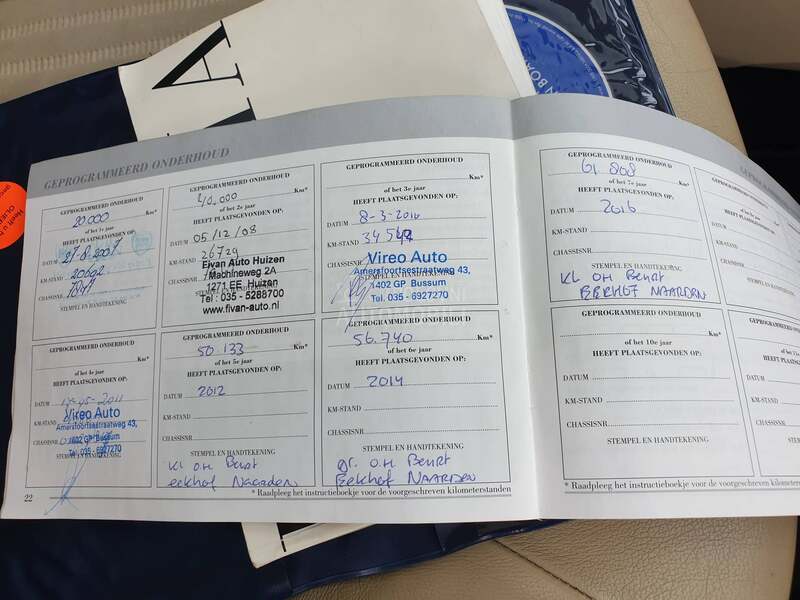 GEPROGRAMMEERD ONDERHOUD
GEPROGRAMMEERD ONDERHOUD
20.000 Km*
of het 1e jaar
HEEFT PLAATSGEVONDEN OP:
DATUM 27-8-2007
KM-STAND 20692
CHASSISNR
STEMPEL EN HANDTEKENING
GEPROGRAMMEERD ONDERHOUD
40.000 Km*
of het 2e jaar
HEEFT PLAATSGEVONDEN OP:
DATUM 05/12/08
KM-STAND 26729
Fivan Auto Huizen
Machineweg 2A
1271 EE Huizen
Tel : 035 - 5288700
www.fivan-auto.nl
GEPROGRAMMEERD ONDERHOUD
Km*
of het 3e jaar
HEEFT PLAATSGEVONDEN OP:
DATUM 8-3-2010
KM-STAND
CHASSISNR
Vireo Auto
Amersfoortsestraatweg 43,
1402 GP Bussum
Tel. 035 - 6927270
GEPROGRAMMEERD ONDERHOUD
Km*
of het 4e jaar
HEEFT PLAATSGEVONDEN OP:
DATUM
KM-STAND
CHASSISNR
Vireo Auto
Amersfoortsestraatweg 43,
1402 GP Bussum
Tel. 035 - 6927270
STEMPEL EN HANDTEKENING
GEPROGRAMMEERD ONDERHOUD
50.133 Km*
of het 5e jaar
HEEFT PLAATSGEVONDEN OP:
DATUM 2012
KM-STAND
CHASSISNR
STEMPEL EN HANDTEKENING
Kl O.H Beurt
eekhof Naarden
GEPROGRAMMEERD ONDERHOUD
56.740 Km*
of het 6e jaar
HEEFT PLAATSGEVONDEN OP:
DATUM 2014
KM-STAND
CHASSISNR
STEMPEL EN HANDTEKENING
gr. O.H Beurt
Eekhof NAARDEN
22
* Raadpleeg het instructieboekje voor de voorgeschreven kilometerstanden
GEPROGRAMMEERD ONDERHOUD
61 808 Km*
of het 7e jaar
HEEFT PLAATSGEVONDEN OP:
DATUM 2016
KM-STAND
CHASSISNR
STEMPEL EN HANDTEKENING
Kl O.H Beurt
EEKHOF NAARDEN
GEPROGRAMMEERD ONDERHOUD
Km*
of het 10e jaar
HEEFT PLAATSGEVONDEN OP:
DATUM
KM-STAND
CHASSISNR
STEMPEL EN HANDTEKENING
* Raadpleeg het instructieboekje voor de voorgeschreven kilometerstanden